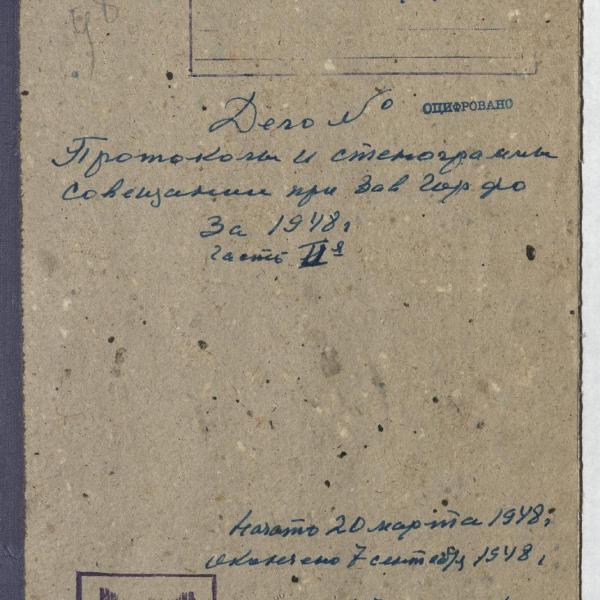 Дело №
ОЦИФРОВАНО
Протоколы и стенограммы
совещании при Зав Гор фо
За 1948г
Часть IIя
Начато 20 марта 1948г
окончено 7 сентября 1948г